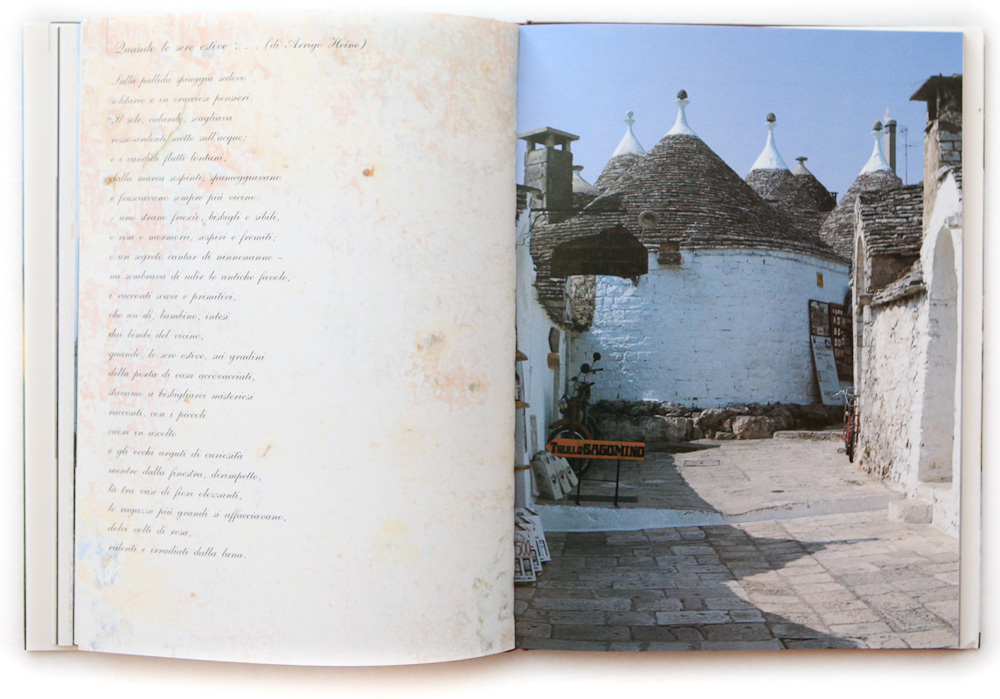 Quando le sere estive . . . (di Arrigo Heine)
Sulla pallida spiaggia sedevo
solitario e in crucciosi pensieri.
Il sole, calando, scagliava
rosso-ardenti saette sull'acqua;
e i candidi flutti lontani,
dalla marea sospinti, spumeggiavano
e frusciavano sempre più vicino:
- uno strano fruscìo, bisbigli e sibili,
e risa e mormorii, sospiri e fremiti;
e un segreto cantar di ninnenanne -
mi sembrava di udir le antiche favole,
i racconti soavi e primitivi,
che un dì, bambino, intesi
dai bimbi del vicino,
quando, le sere estive, sui gradini
della porta di casa accovacciati,
stavamo a bisbigliarci misteriosi
racconti, con i piccoli
cuori in ascolto
e gli occhi arguti di curiosità
mentre dalla finestra, dirimpetto,
là tra vasi di fiori olezzanti,
le ragazze più grandi si affacciavano,
dolci volti di rosa,
ridenti e irradiati dalla luna.
TRULLO BAGOMINO